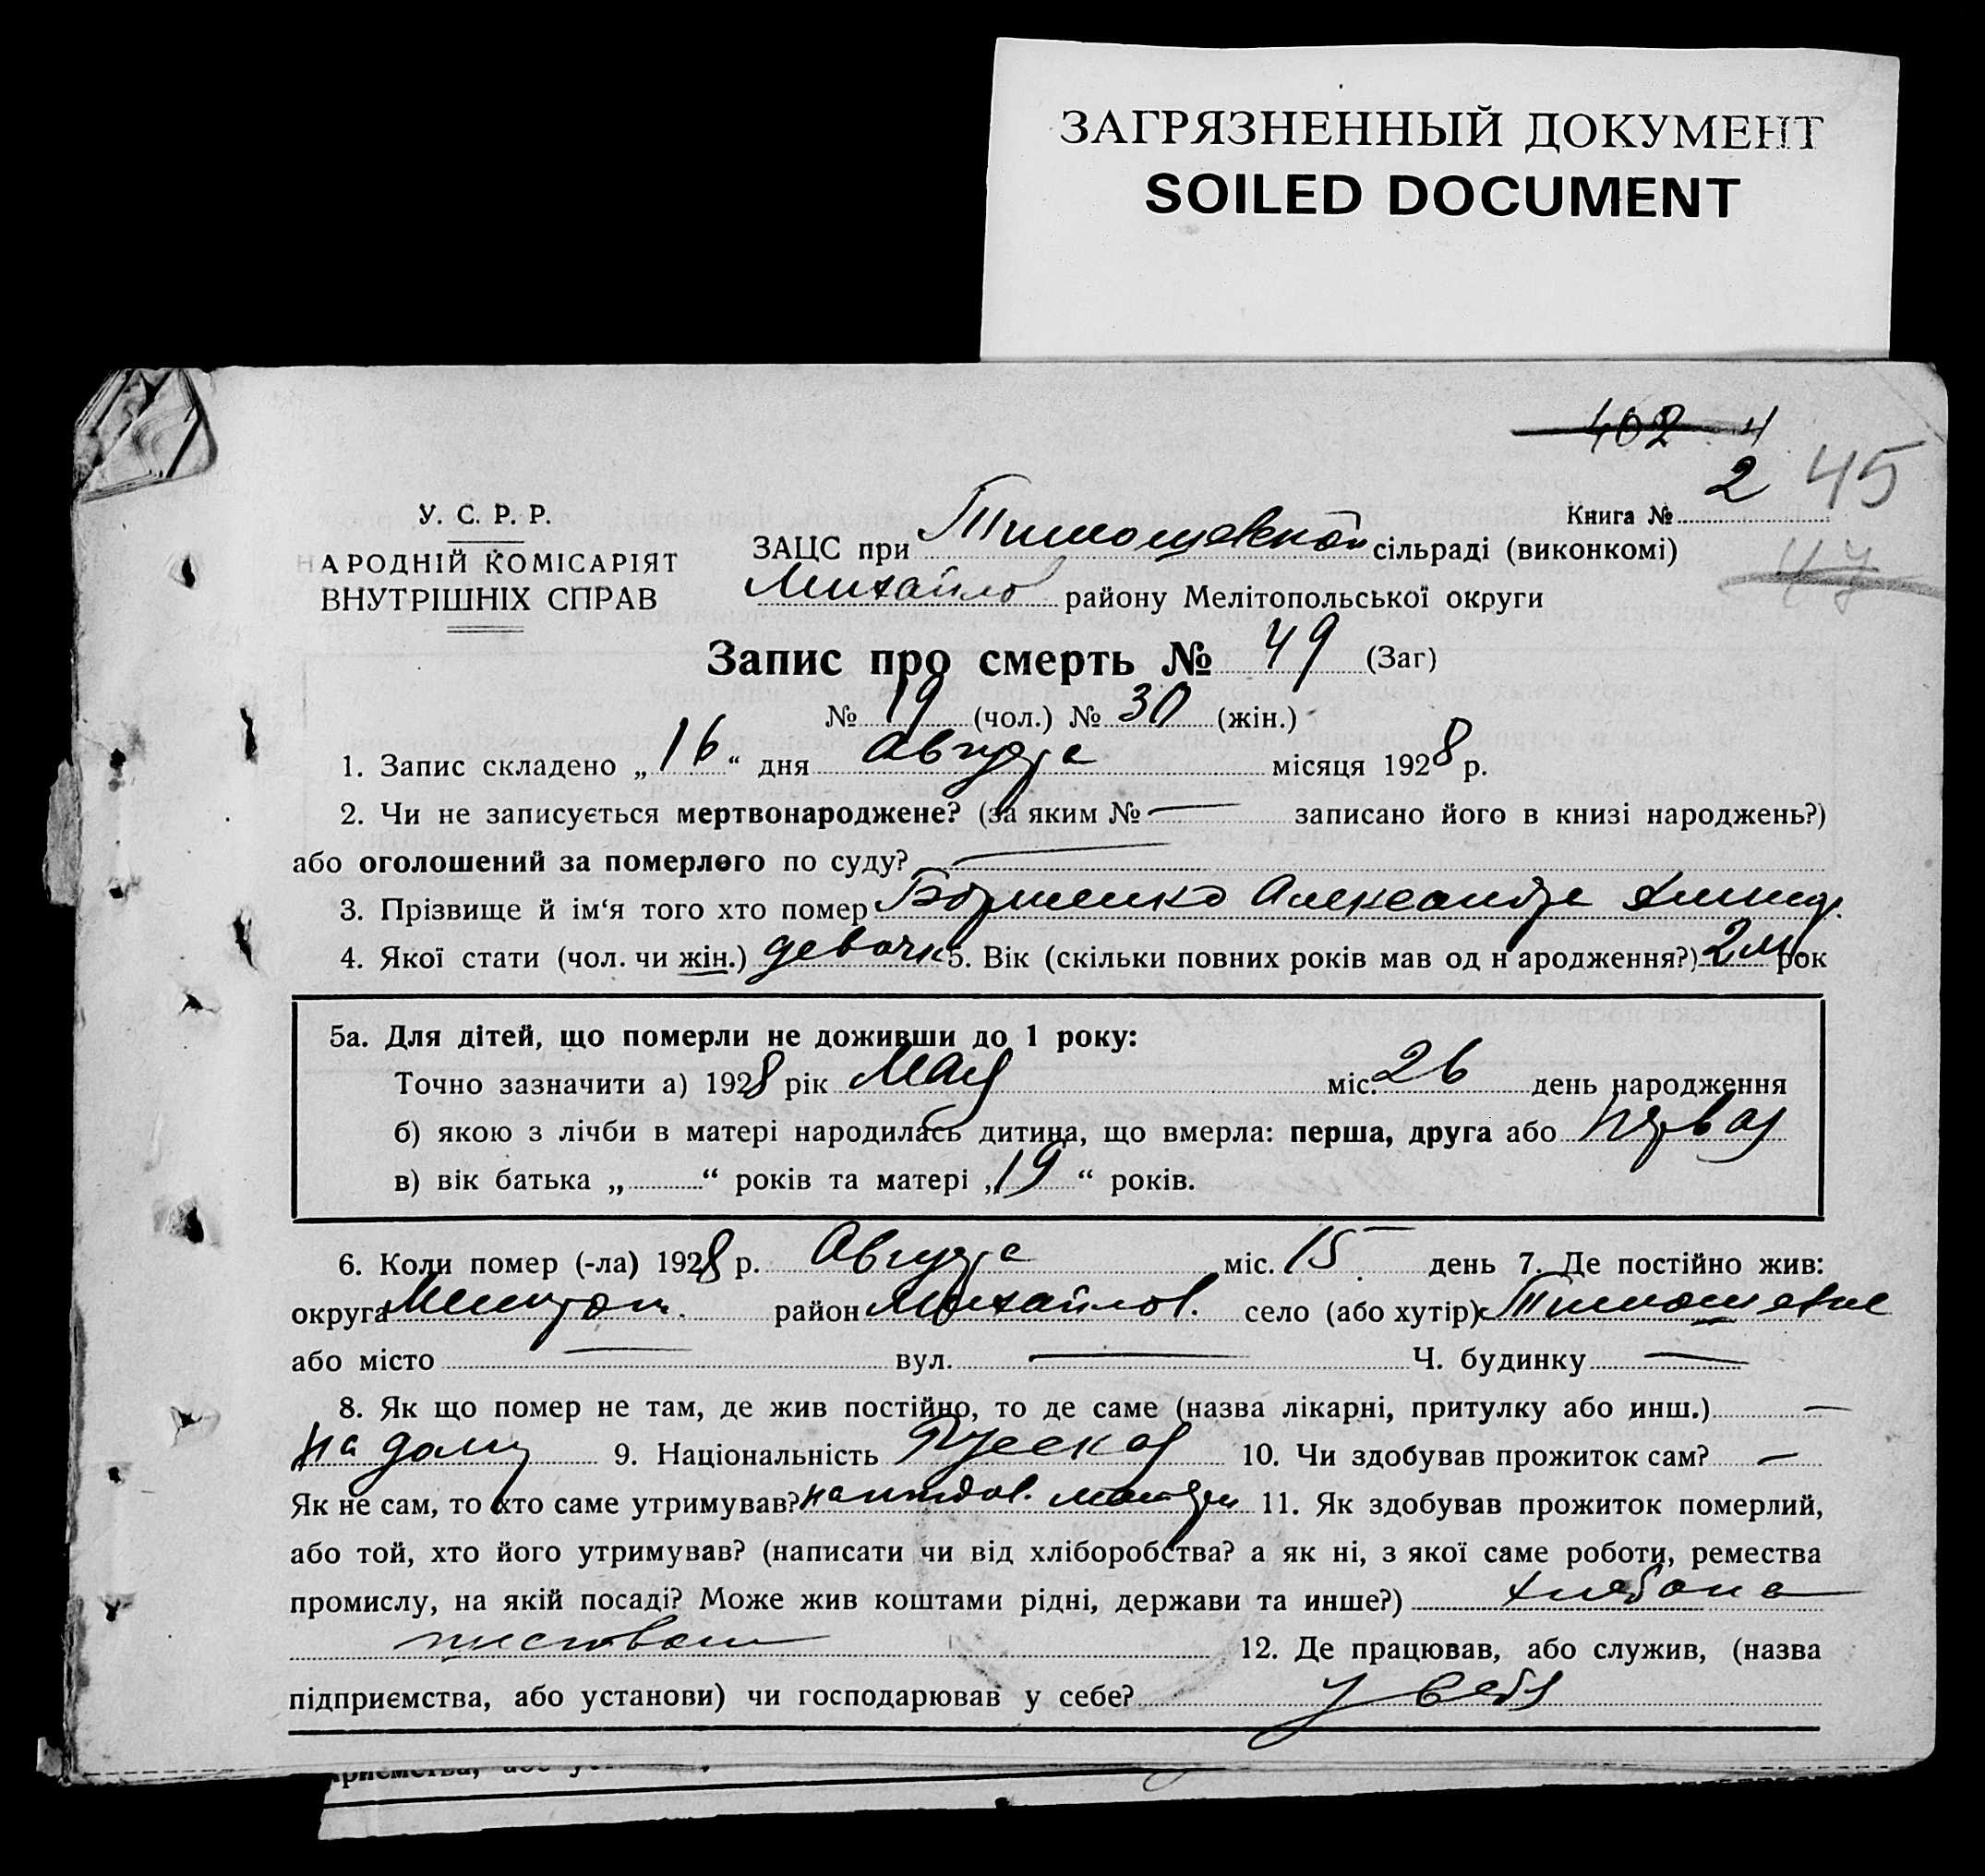 ЗАГРЯЗНЕННЫЙ ДОКУМЕНТ
SOILED DOCUMENT
402 4
2 45
У. С. Р. Р.
Книга №
НАРОДНІЙ КОМІСАРІЯТ
ВНУТРІШНІХ СПРАВ
ЗАЦС при Тимошевской сільраді (виконкомі)
47
Михайло района Мелітопольської округи
Запис про смерть № 49 (Заг)
№ 19 (чол.) № 30 (жін.)
1. Запис складено „16“ дня Августа місяця 1928 р.
2. Чи не записується мертвонароджене? (за яким № — записано його в книзі народжень?)
або оголошений за померлого по суду? —
3. Прізвище й ім‘я того хто помер Александра
4. Якої стати (чол. чи жін.) девочк 5. Вік (скільки повних років мав од народження?) 2 м. рок
5а. Для дітей, що померли не доживши до 1 року:
Точно зазначити а) 1928 рік Мая міс. 26 день народження
б) якою з лічби в матері народилась дитина, що вмерла: перша, друга або первая
в) вік батька „ “ років та матері „19“ років.
6. Коли помер (-ла) 1928 р. Августа міс. 15 день 7. Де постійно жив:
округа Мелитоп. район Михайлов. село (або хутір) Тимошевке
або місто — вул. — Ч. будинку —
8. Як що помер не там, де жив постійно, то де саме (назва лікарні, притулку або инш.) —
на дому 9. Національність Русская 10. Чи здобував прожиток сам? —
Як не сам, то хто саме утримував? на иждов. матери 11. Як здобував прожиток померлий,
або той, хто його утримував? (написати чи від хліборобства? а як ні, з якої саме роботи, ремества
промислу, на якій посаді? Може жив коштами рідні, держави та инше?) хлебопа
шеством 12. Де працював, або служив, (назва
підприємства, або установи) чи господарював у себе? у себя